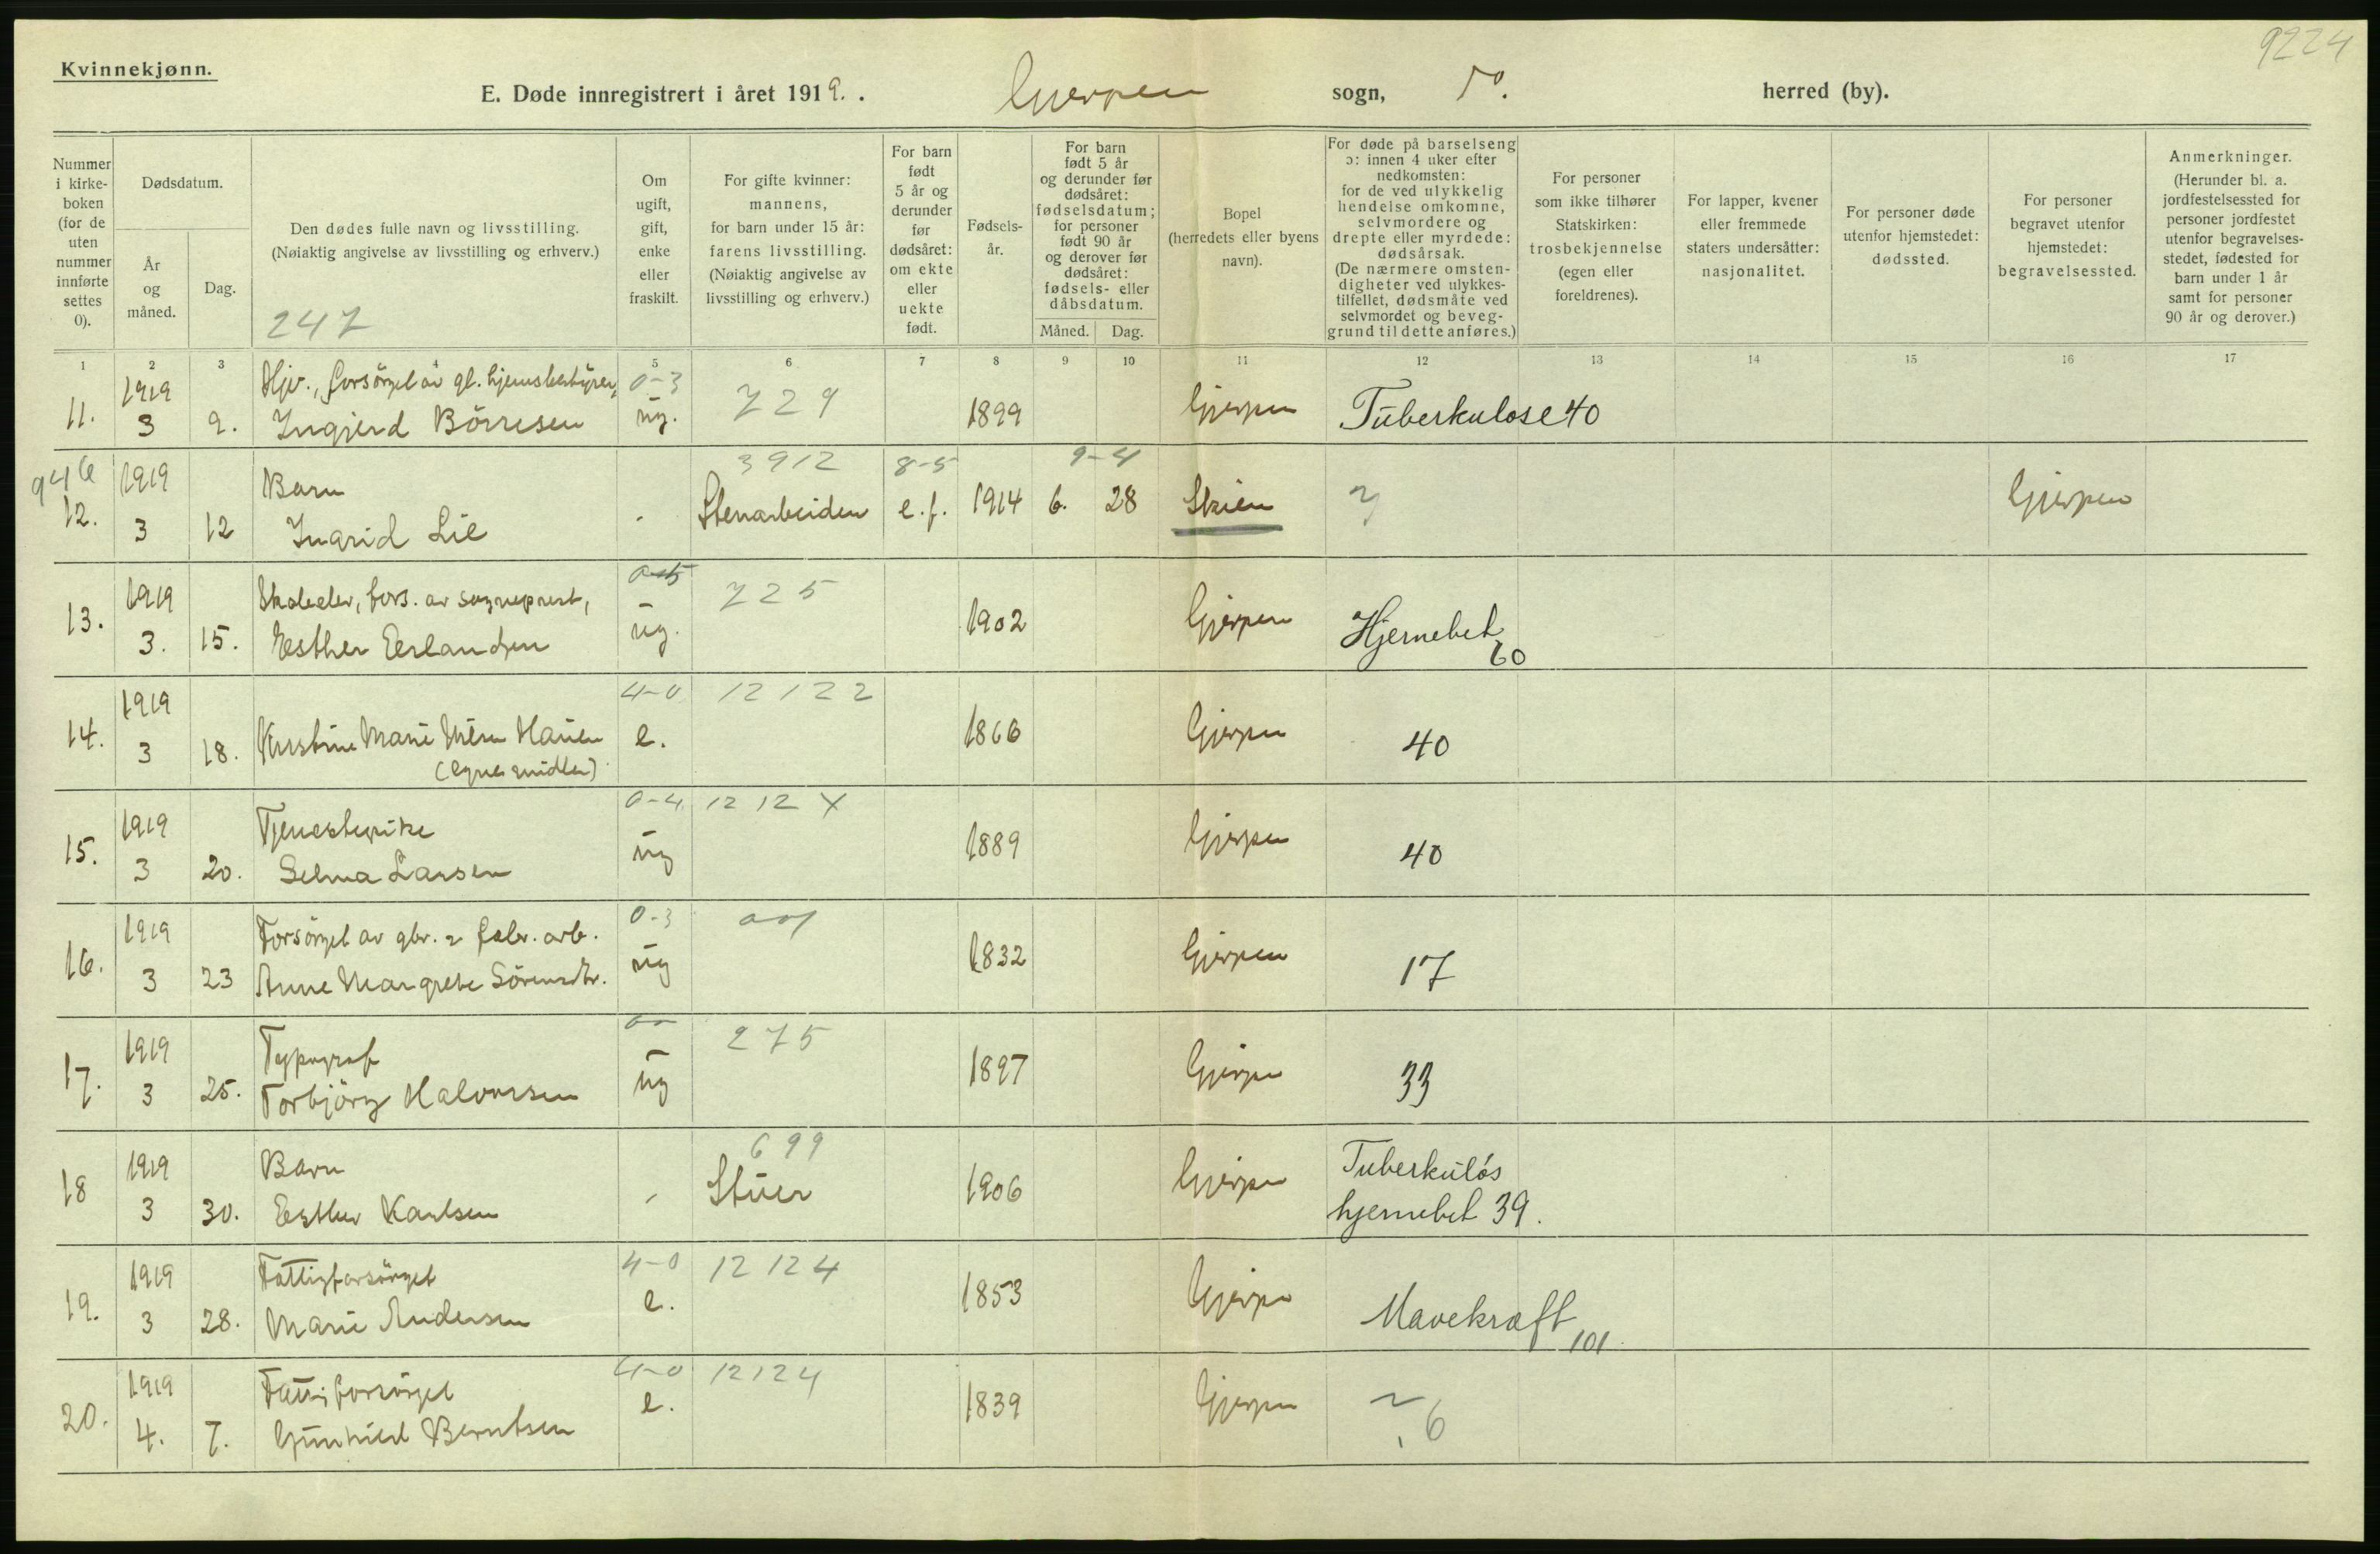 9224
Kvinnekjønn.
E. Døde innregistrert i året 1919. . Gjerpen sogn, Do. herred (by).
Nummer i kirke-boken (for de uten nummer innførte settes 0).
Dødsdatum.
År og måned.
Dag.
Den dødes fulle navn og livsstilling.
(Nøiaktig angivelse av livsstilling og erhverv.)
247
Om ugift, gift, enke eller fraskilt.
For gifte kvinner: mannens, for barn under 15 år: farens livsstilling. (Nøiaktig angivelse av livsstilling og erhverv.)
For barn født 5 år og derunder før dødsåret: om ekte eller uekte født.
Fødsels-år.
For barn født 5 år og derunder før dødsåret: fødselsdatum; for personer født 90 år og derover før dødsåret: fødsels- eller dåbsdatum.
Måned. Dag.
Bopel (herredets eller byens navn).
For døde på barselseng ɔ: innen 4 uker efter nedkomsten: for de ved ulykkelig hendelse omkomne, selvmordere og drepte eller myrdede: dødsårsak. (De nærmere omsten-digheter ved ulykkes-tilfellet, dødsmåte ved selvmordet og beveg-grund til dette anføres.)
For personer som ikke tilhører Statskirken: trosbekjennelse (egen eller foreldrenes).
For lapper, kvener eller fremmede staters undersåtter: nasjonalitet.
For personer døde utenfor hjemstedet: dødssted.
For personer begravet utenfor hjemstedet: begravelsessted.
Anmerkninger. (Herunder bl. a. jordfestelsessted for personer jordfestet utenfor begravelses-stedet, fødested for barn under 1 år samt for personer 90 år og derover.)
1 2 3 4 5 6 7 8 9 10 11 12 13 14 15 16 17
1919 Hjv., forsörget av gl. hjemsbestyrer, 0-3 729
11. 3 9. Ingjerd Börresen ug. 1899 Gjerpen Tuberkulose 40
946 1919 Barn 3912 8-5 9-4
12. 3 12 Ingrid Lie - Stenarbeider e.f. 1914 6. 28 Skien ? Gjerpen
1919 Skoleelev, fors. av sogneprest, 0-5 725
13. 3. 15. Esther Erlandsen ug. 1902 Gjerpen Hjernebet 60
1919 4-0 12122
14. 3 18. Kristine Marie Hansen e. 1866 Gjerpen 40
(egne midler)
1919 Tjenestepike 0-4 12 12 X
15. 3 20. Selma Larsen ug 1889 Gjerpen 40
1919 Forsörget av gbr. & fabr. arb. 0-3
16. 3 23 Anne Margrete Sörensdtr. ug 1832 Gjerpen 17
1919 Typograf 275
17. 3 25. Torbjörg Halvorsen ug 1897 Gjerpen 33
1919 Barn 699
18 3 30. Esther Karlsen - Stuer 1906 Gjerpen Tuberkulös
hjernebet 39.
1919 Fattigforsörget 4-0 12 124
19. 3 28. Marie Andersen e. 1853 Gjerpen Mavekræft 101
1919 Fattigforsörget 4-0 12124
20. 4. 7. Gunhild Berntsen e. 1839 Gjerpen ? 6